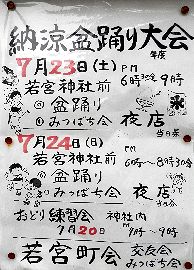 納涼盆踊り大会
7月23日(土) PM 6時30分 9時
若宮神社前
◎盆踊り
◎みつばち会 夜店
氷
7月24日(日) PM
若宮神社前 6時〜8時30分
◎盆踊り
◎みつばち会 夜店
おどり練習会 神社内
7月20日 7時〜9時
若宮町会 交友会
みつばち会